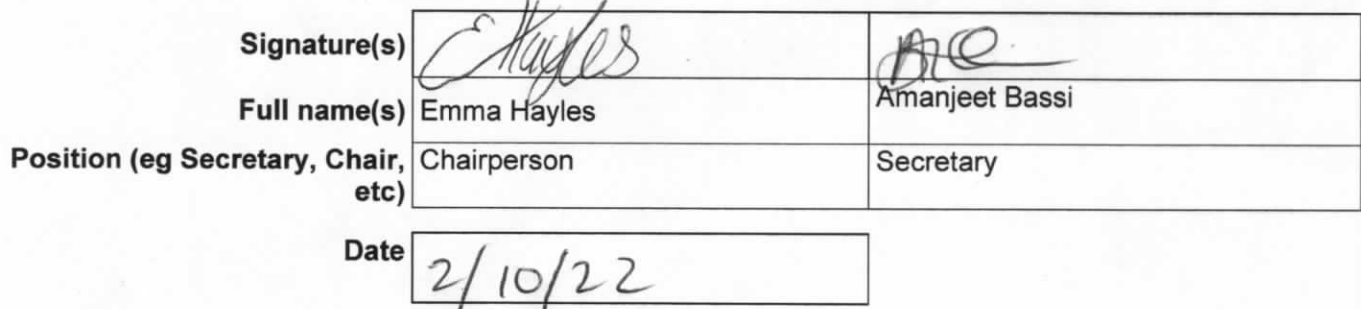 Signature(s) EHayles
Full name(s) Emma Hayles Amanjeet Bassi
Position (eg Secretary, Chair, Chairperson Secretary
etc)
Date 2/10/22